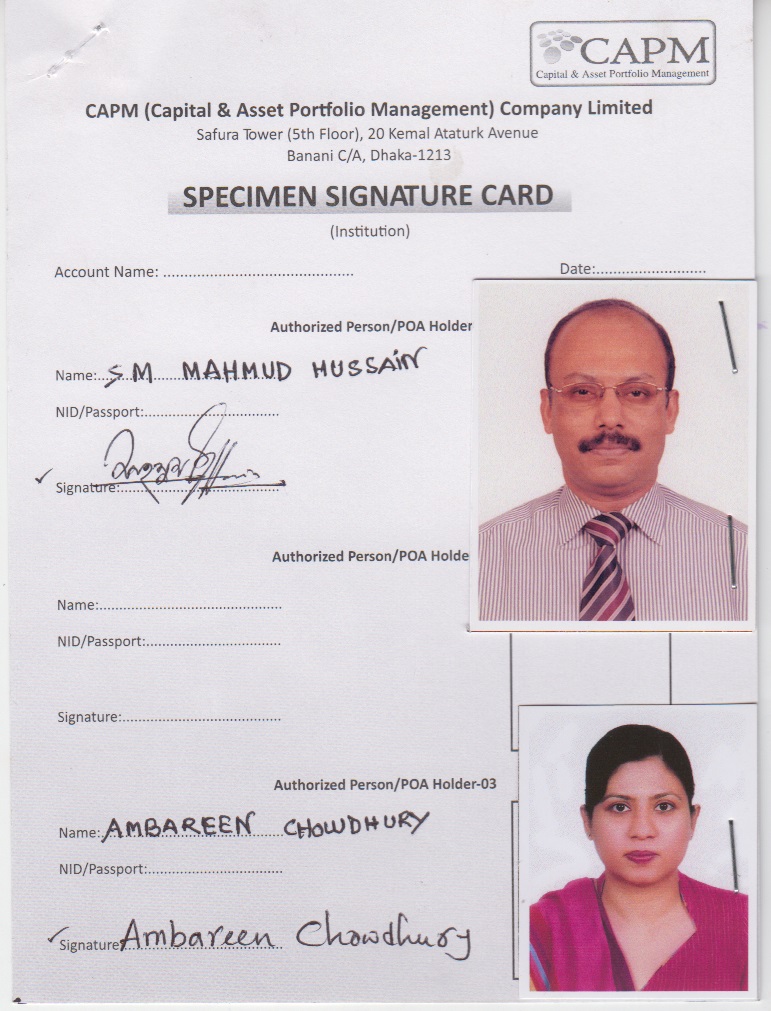 CAPM
Capital & Asset Portfolio Management
CAPM (Capital & Asset Portfolio Management) Company Limited
Safura Tower (5th Floor), 20 Kemal Ataturk Avenue
Banani C/A, Dhaka-1213
SPECIMEN SIGNATURE CARD
(Institution)
Account Name: ............................................. Date:..........................
Authorized Person/POA Holder
Name: SM MAHMUD HUSSAIN
NID/Passport:................................
Signature:......................................
Authorized Person/POA Holde
Name:...........................................
NID/Passport:................................
Signature:.....................................
Authorized Person/POA Holder-03
Name: AMBAREEN CHOWDHURY
NID/Passport:................................
Signature Ambareen Chowdhury